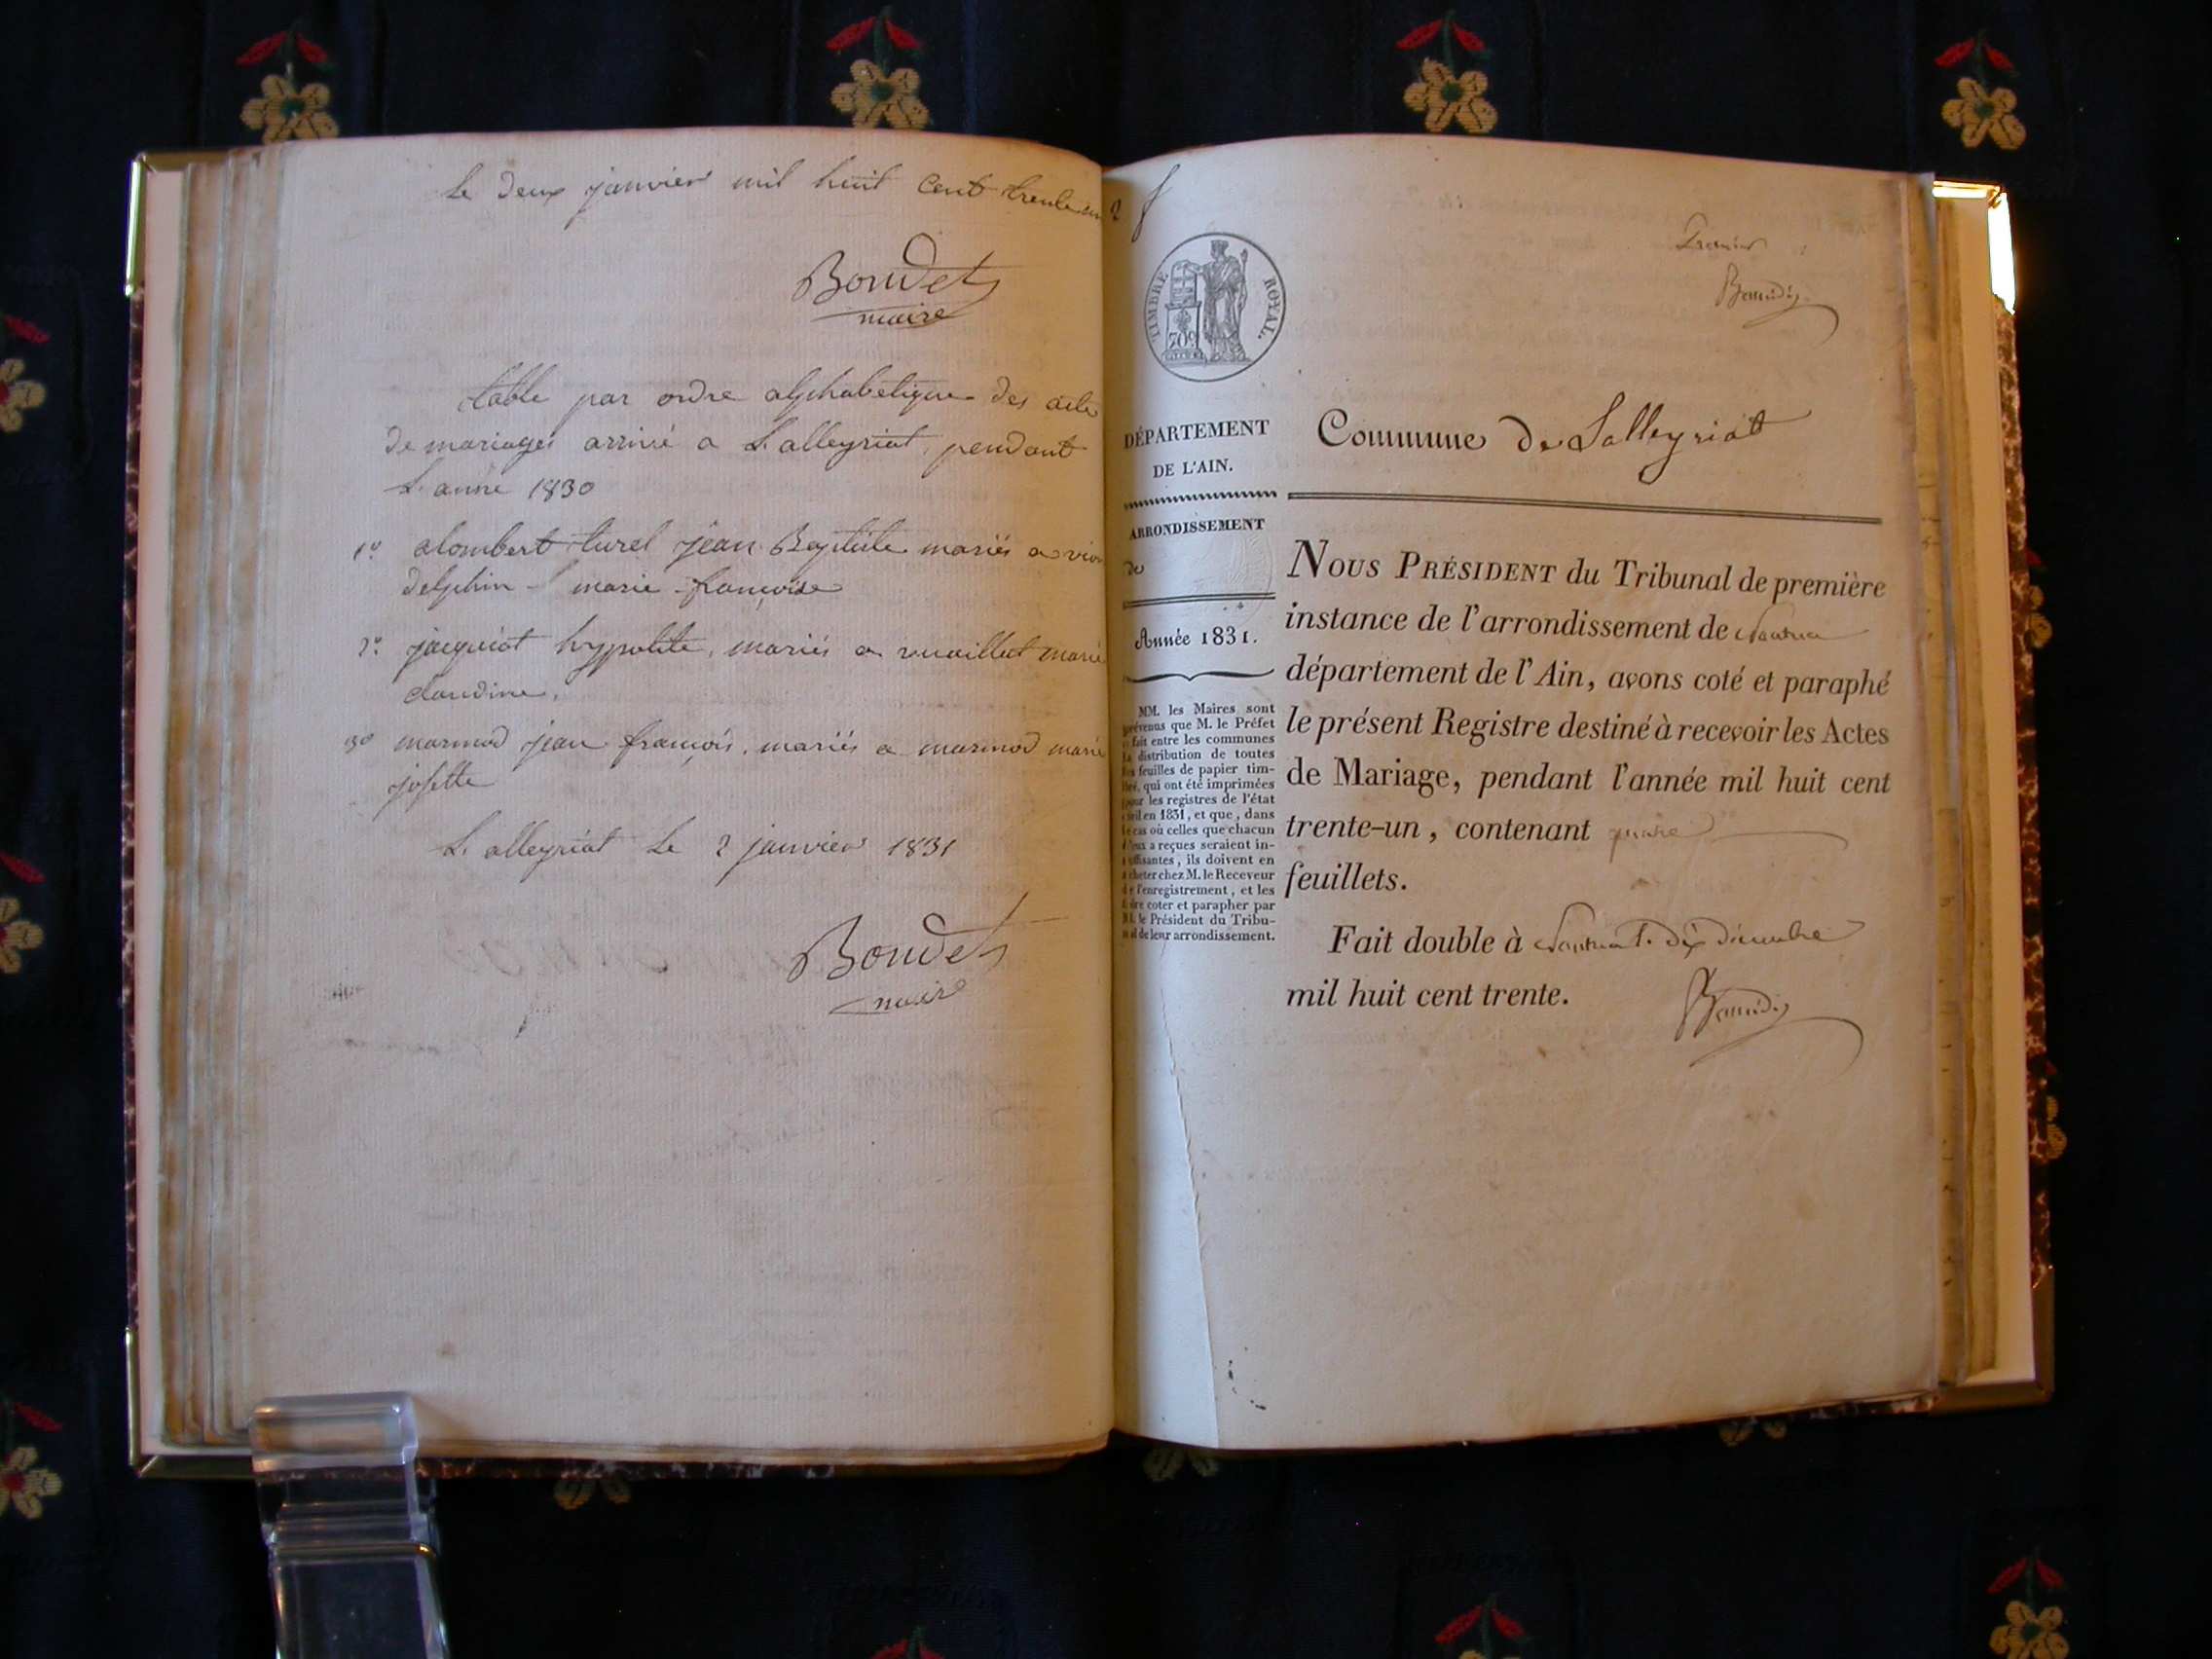 Le deux janvier mil huit cent trente un
Boudet
maire
table par ordre alphabetique des acte
de mariages arrivé a L'alleyriat, pendant
L'anné 1830
1º alombert turel jean Baptiste mariés a
delphin marie françoise
2º jacquiot hypolite, mariés a vuaillat marie
claudine,
3º marmod jean françois, mariés a marmod marie
josette
L'alleyriat Le 2 janvier 1831
Boudet
maire
TIMBRE ROYAL.
70c
DÉPARTEMENT
DE L'AIN.
ARRONDISSEMENT
de
Année 1831.
MM. les Maires sont
prévenus que M. le Préfet
a fait entre les communes
la distribution de toutes
les feuilles de papier tim-
bré, qui ont été imprimées
pour les registres de l'état
civil en 1831, et que, dans
le cas où celles que chacun
d'eux a reçues seraient in-
suffisantes, ils doivent en
acheter chez M. le Receveur
de l'enregistrement, et les
faire coter et parapher par
M. le Président du Tribu-
nal de leur arrondissement.
Premier
Commune de Lalleyriat
NOUS PRÉSIDENT du Tribunal de première
instance de l'arrondissement de Nantua
département de l'Ain, avons coté et paraphé
le présent Registre destiné à recevoir les Actes
de Mariage, pendant l'année mil huit cent
trente-un, contenant
feuillets.
Fait double à Nantua le dix décembre
mil huit cent trente.